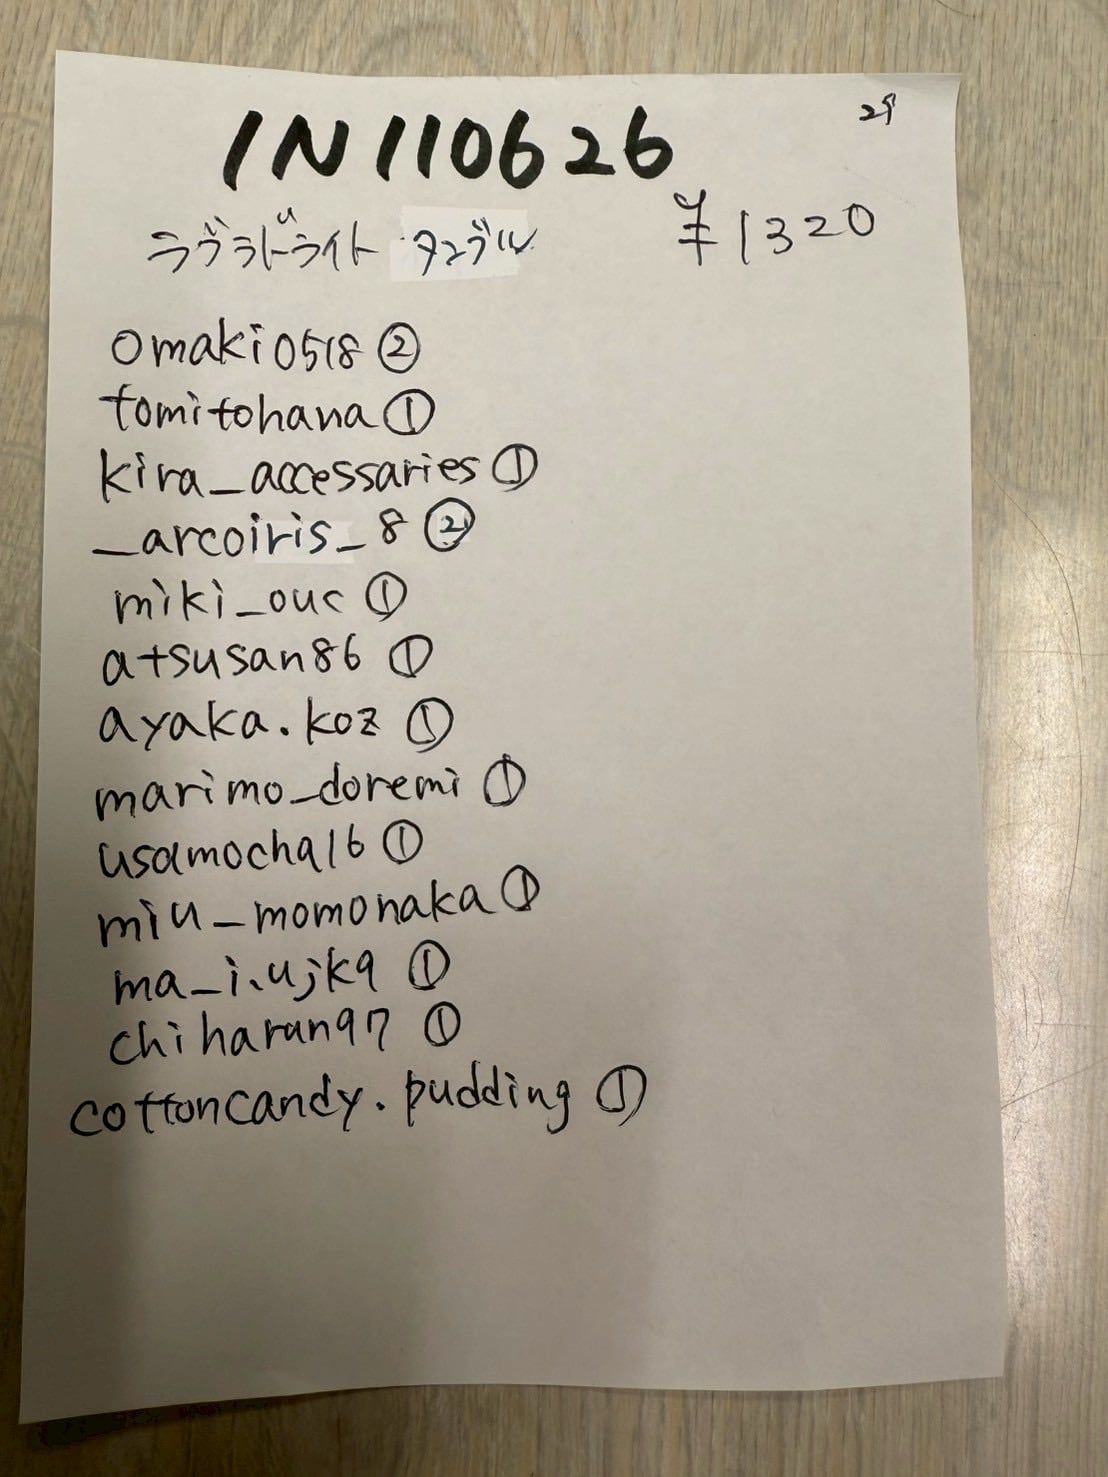 29
IN110626
ラブラドライト タンブル ¥1320
omaki0518②
tomitohana①
kira_accessaries①
_arcoiris_8②
miki_ouc①
atsusan86①
ayaka.koz①
marimo_doremi①
usamocha16①
miu_momonaka①
ma_i.ujk9①
chiharun97①
cottoncandy.pudding①